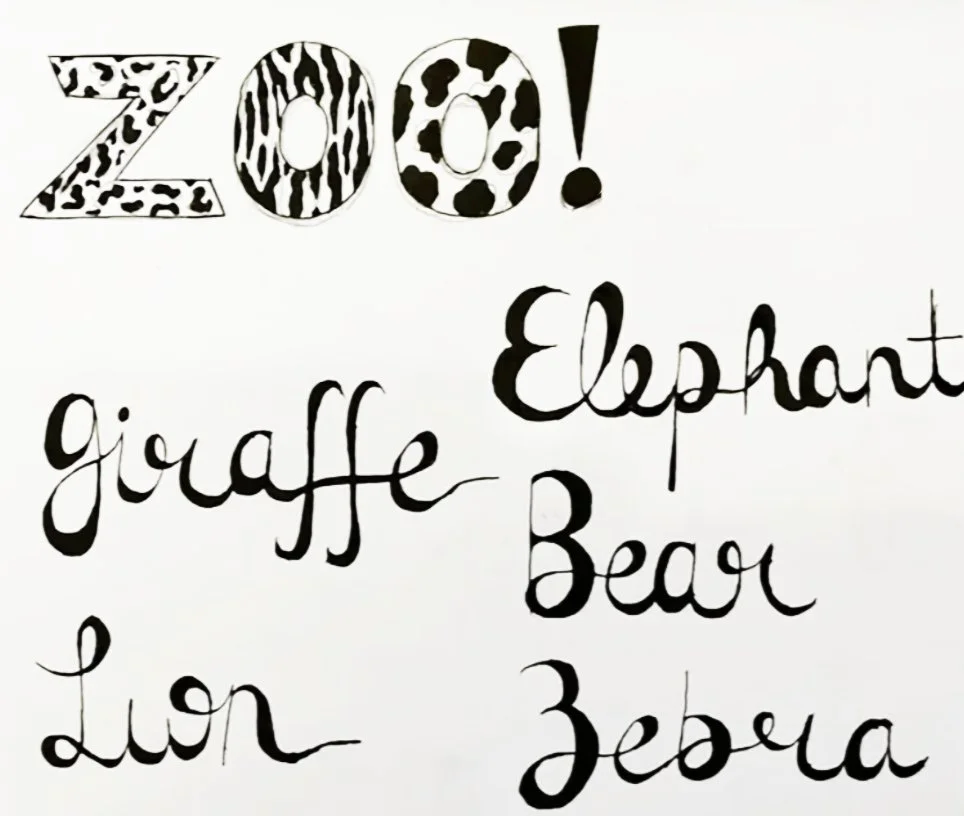 ZOO!
Elephant
Giraffe
Bear
Lion
Zebra